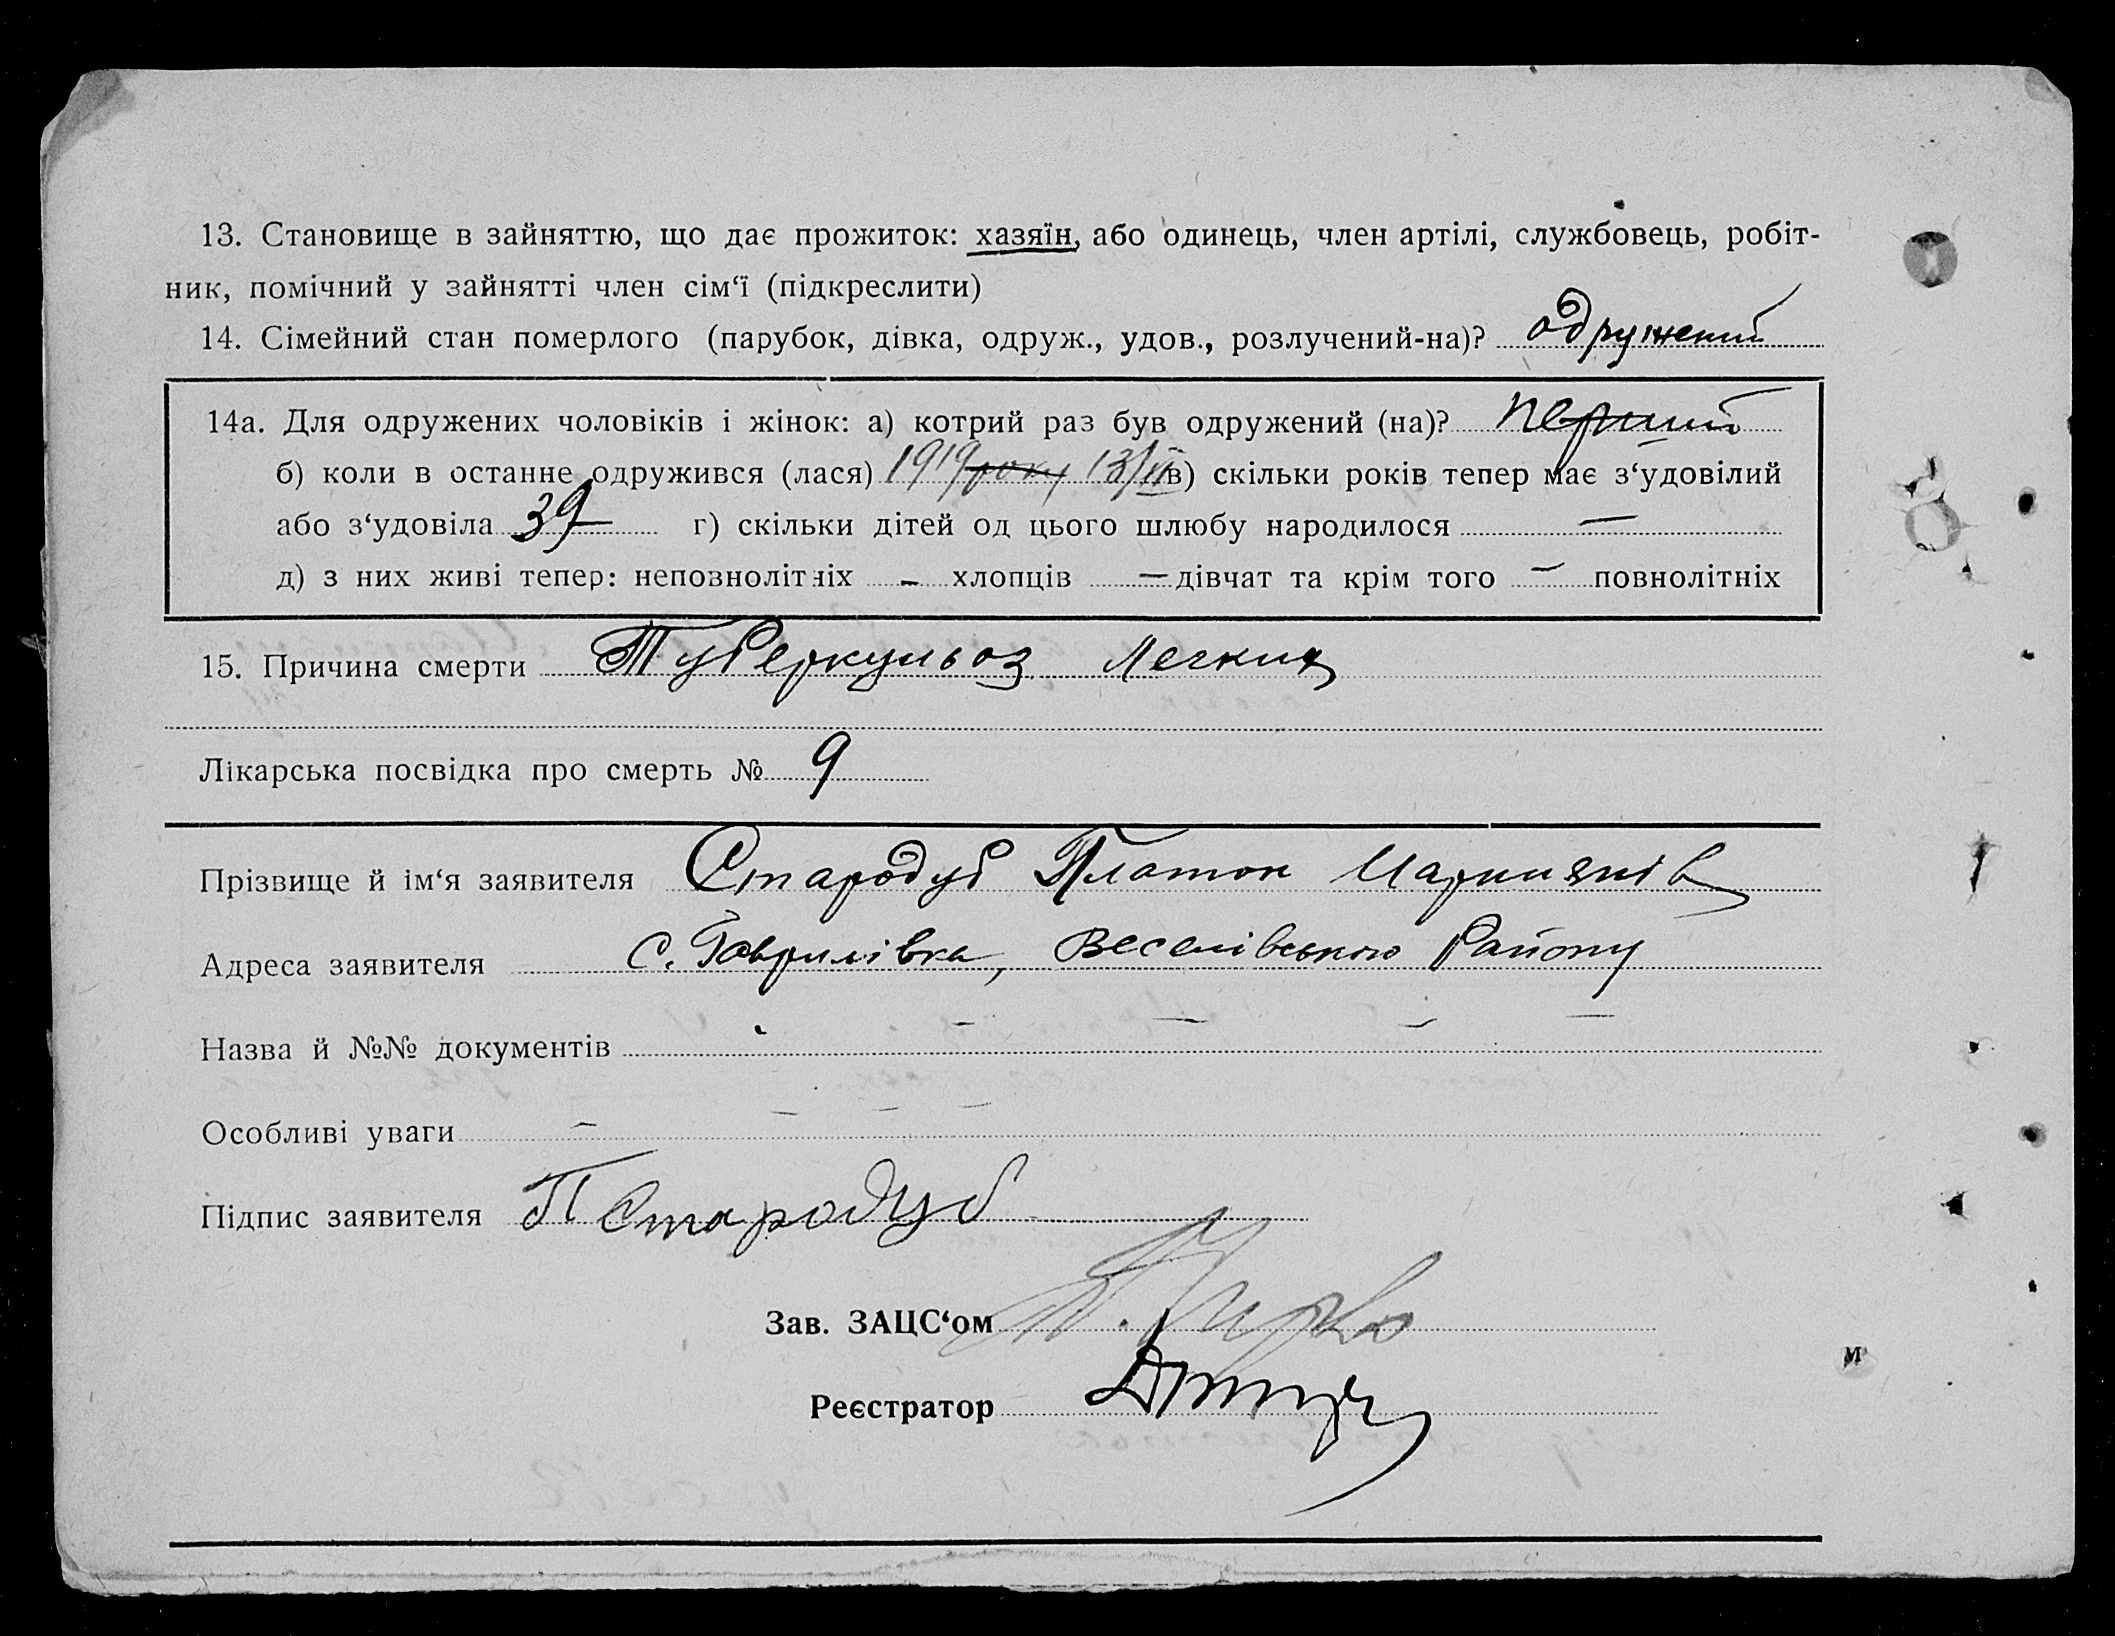 13. Становище в зайняттю, що дає прожиток: хазяїн, або одинець, член артілі, службовець, робіт-
ник, помічний у зайнятті член сім‘ї (підкреслити)
14. Сімейний стан померлого (парубок, дівка, одруж., удов., розлучений-на)? одружений
14а. Для одружених чоловіків і жінок: а) котрий раз був одружений (на)? перший
б) коли в останне одружився (лася) 1919 року 13/II в) скільки років тепер має з‘удовілий
або з‘удовіла 39 — г) скільки дітей од цього шлюбу народилося —
д) з них живі тепер: неповнолітніх - хлопців — дівчат та крім того — повнолітніх
15. Причина смерти Туберкульоз Легких
Лікарська посвідка про смерть № 9
Прізвище й ім‘я заявителя Стародуб Платон
Адреса заявителя с. Гаврилівка, Веселівського Району
Назва й №№ документів - — — — —
Особливі уваги — — — —
Підпис заявителя П Стародуб
Зав. ЗАЦС‘ом
Реєстратор
м